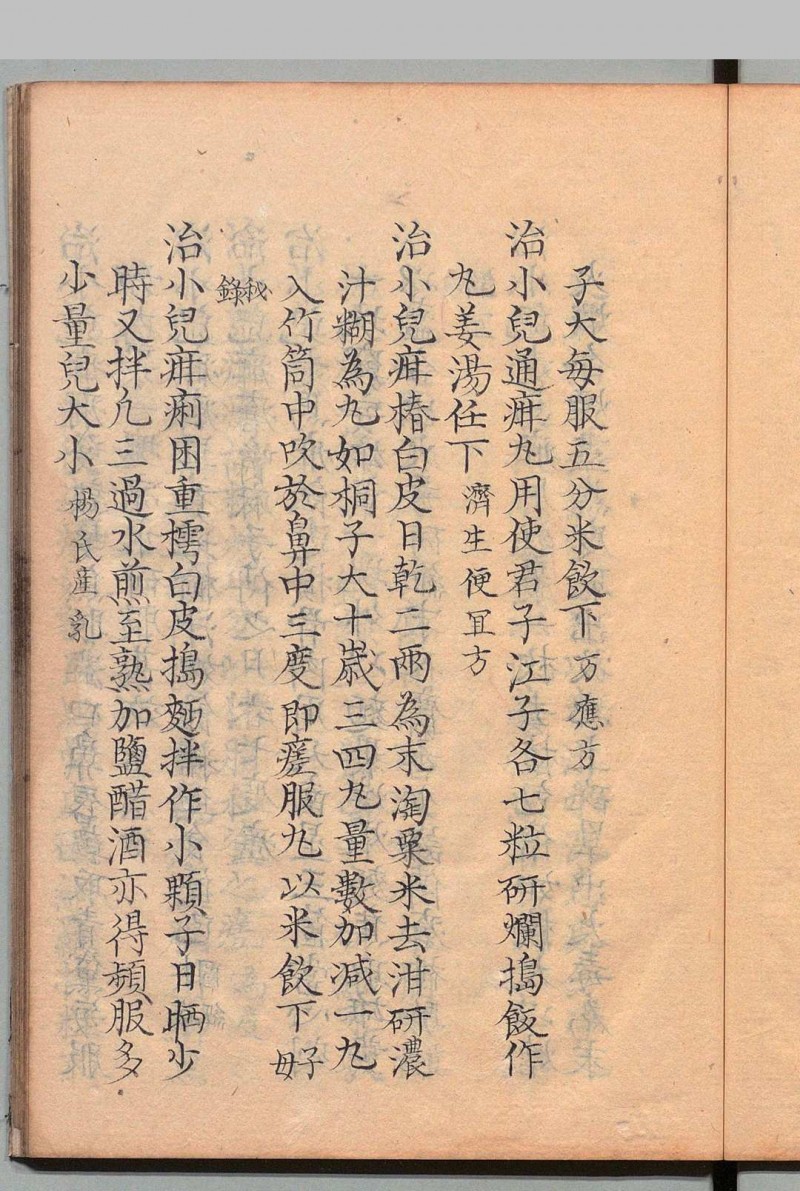 子大每服五分米飲下万應方
治小兒通疳丸用使君子江子各七粒研爛搗飯作
丸姜湯任下濟生便宜方
治小兒疳椿白皮日乾二兩為末淘粟米去泔研濃
汁糊為丸如桐子大十歲三四丸量數加減一丸
入竹筒中吹於鼻中三度即瘥服丸以米飲下子母
秘錄
治小兒疳痢困重樗白皮搗麪拌作小顆子日晒少
時又拌凢三過水煎至熟加鹽醋酒亦得頻服多
少量兒大小楊氏產乳